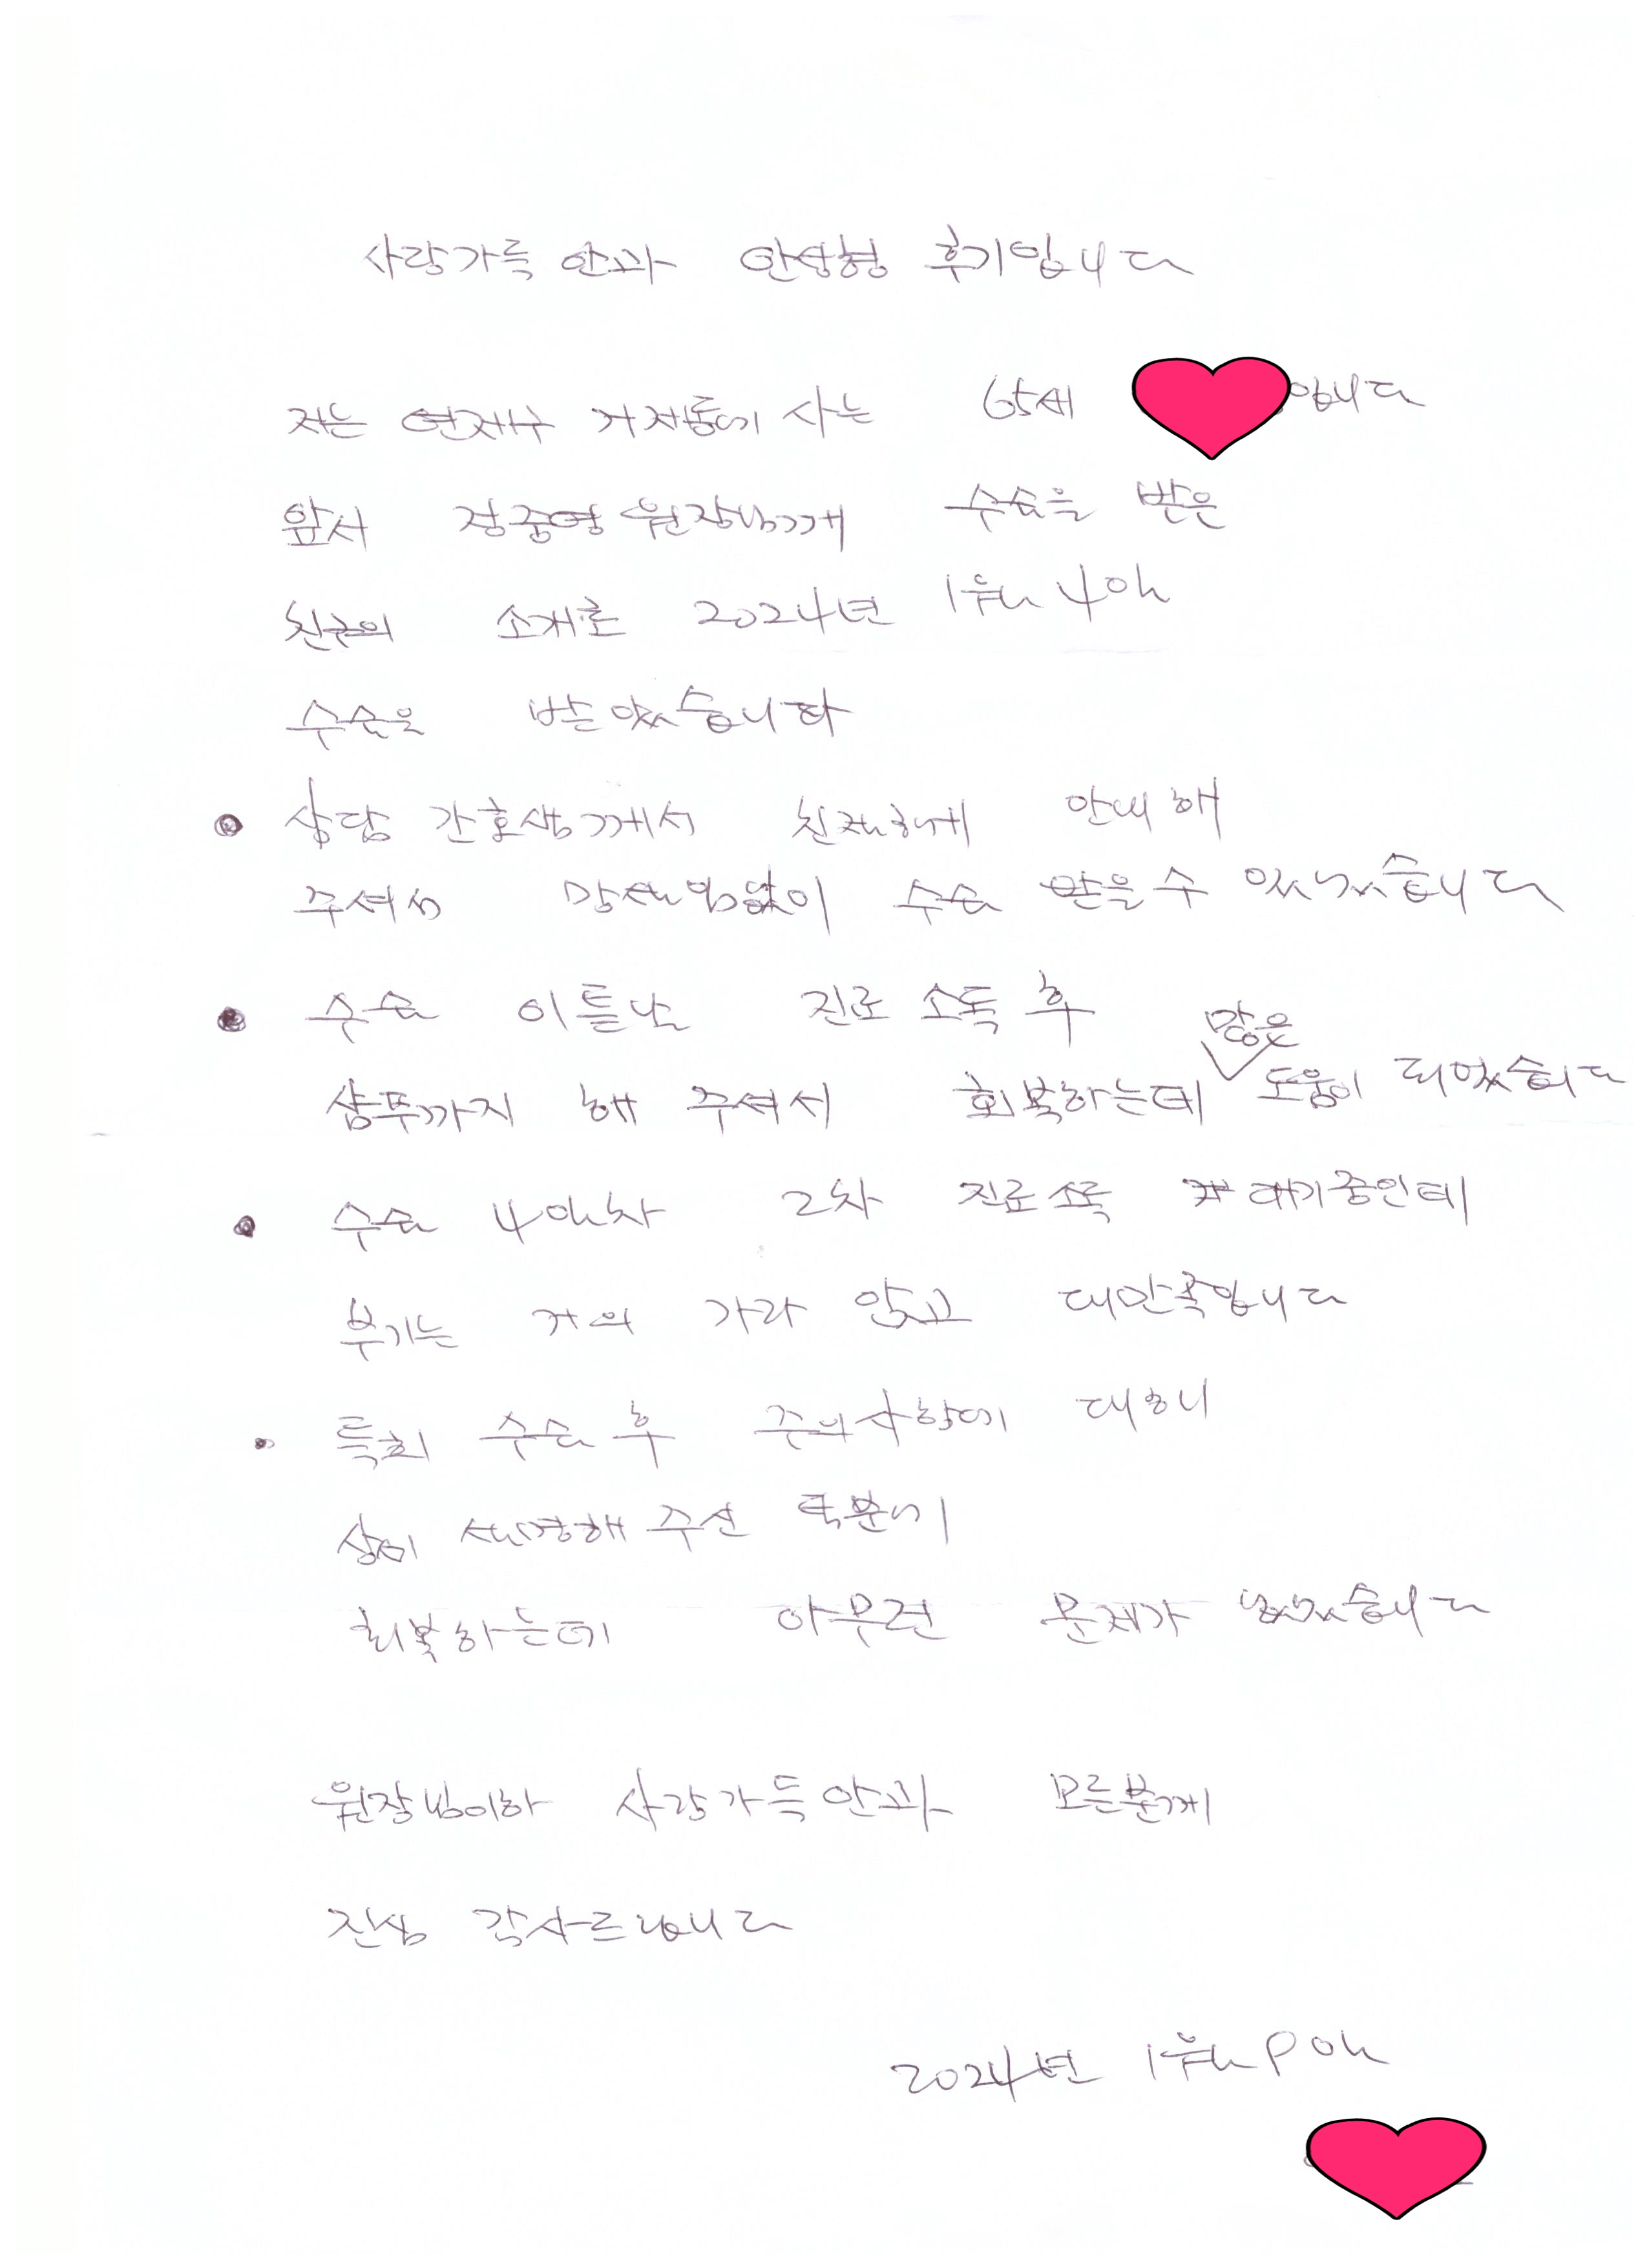 사랑가득 안과 안성형 후기입니다
저는 연제구 거제동에 사는 65세 입니다
앞서 정중영 원장님께 수술을 받은
친구의 소개로 2024년 1월 4일
수술을 받았습니다
● 상담 간호생께서 친절하게 안내해
주셔서 망설임없이 수술 받을 수 있었습니다
● 수술 이튿날 진료 소독 후
샴푸까지 해 주셔서 회복하는데 많은 도움이 되었습니다
● 수술 4일차 2차 진료 소독 대기중인데
부기는 거의 가라 앉고 대만족입니다
• 특히 수술 후 주의사항에 대해
상세 설명해 주신 덕분에
회복하는데 아무런 문제가 없었습니다
원장님이하 사랑가득안과 모든분께
진심 감사드립니다
2024년 1월 8일